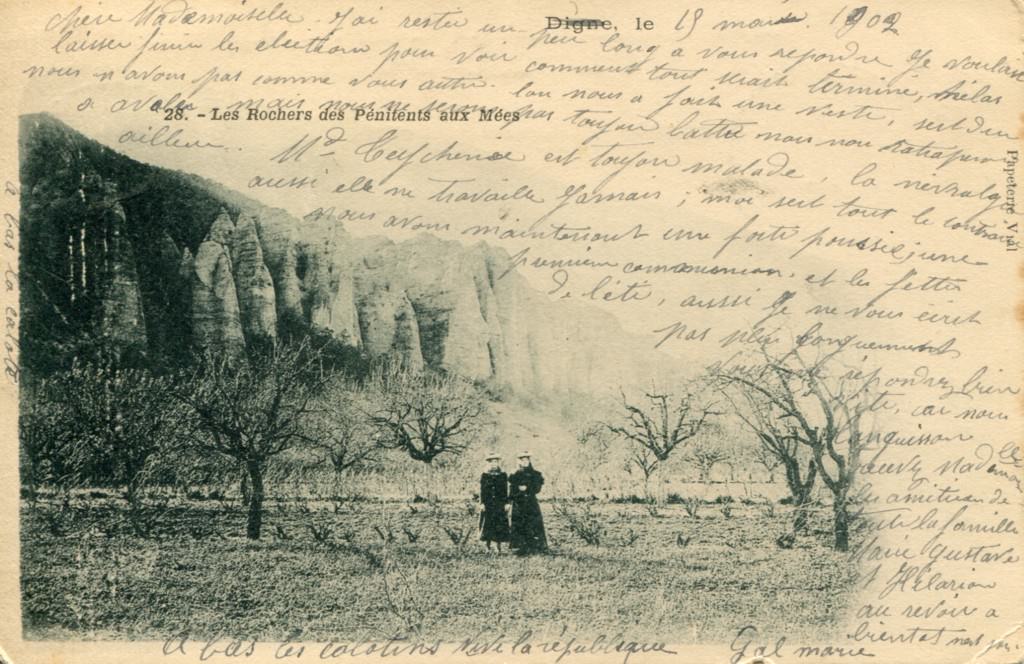 Digne, le 15 mai 1902
Chère Mademoiselle. J'ai rester un peu long a vous repondre Je voulais
laisser finir les elections pour voir comment tout serait terminé, hélas
nous n avons pas comme vous autre. l'on nous a fait une veste,
a avaler, mais nous ne serons pas toujour battu nous nous ratraperon
28. - Les Rochers des Pénitents aux Mées
ailleur.
Md est toujour malade, la nevralgie
aussi elle ne travaille Jamais, moi sest tout le contraire
nous avons maintenant une forte poussée, une
premiere communion, et les fettes
de l'été, aussi Je ne vous ecrit
pas plus longuement
repondez bien
vite, car nous
languisson
Mademoiselle
les amitier de
toute la famille
Marie Gustave
et Hélarion
au revoir a
bientot
Papeterie Vial
a bas la calote
A bas les calotins vive la république
Gal marie